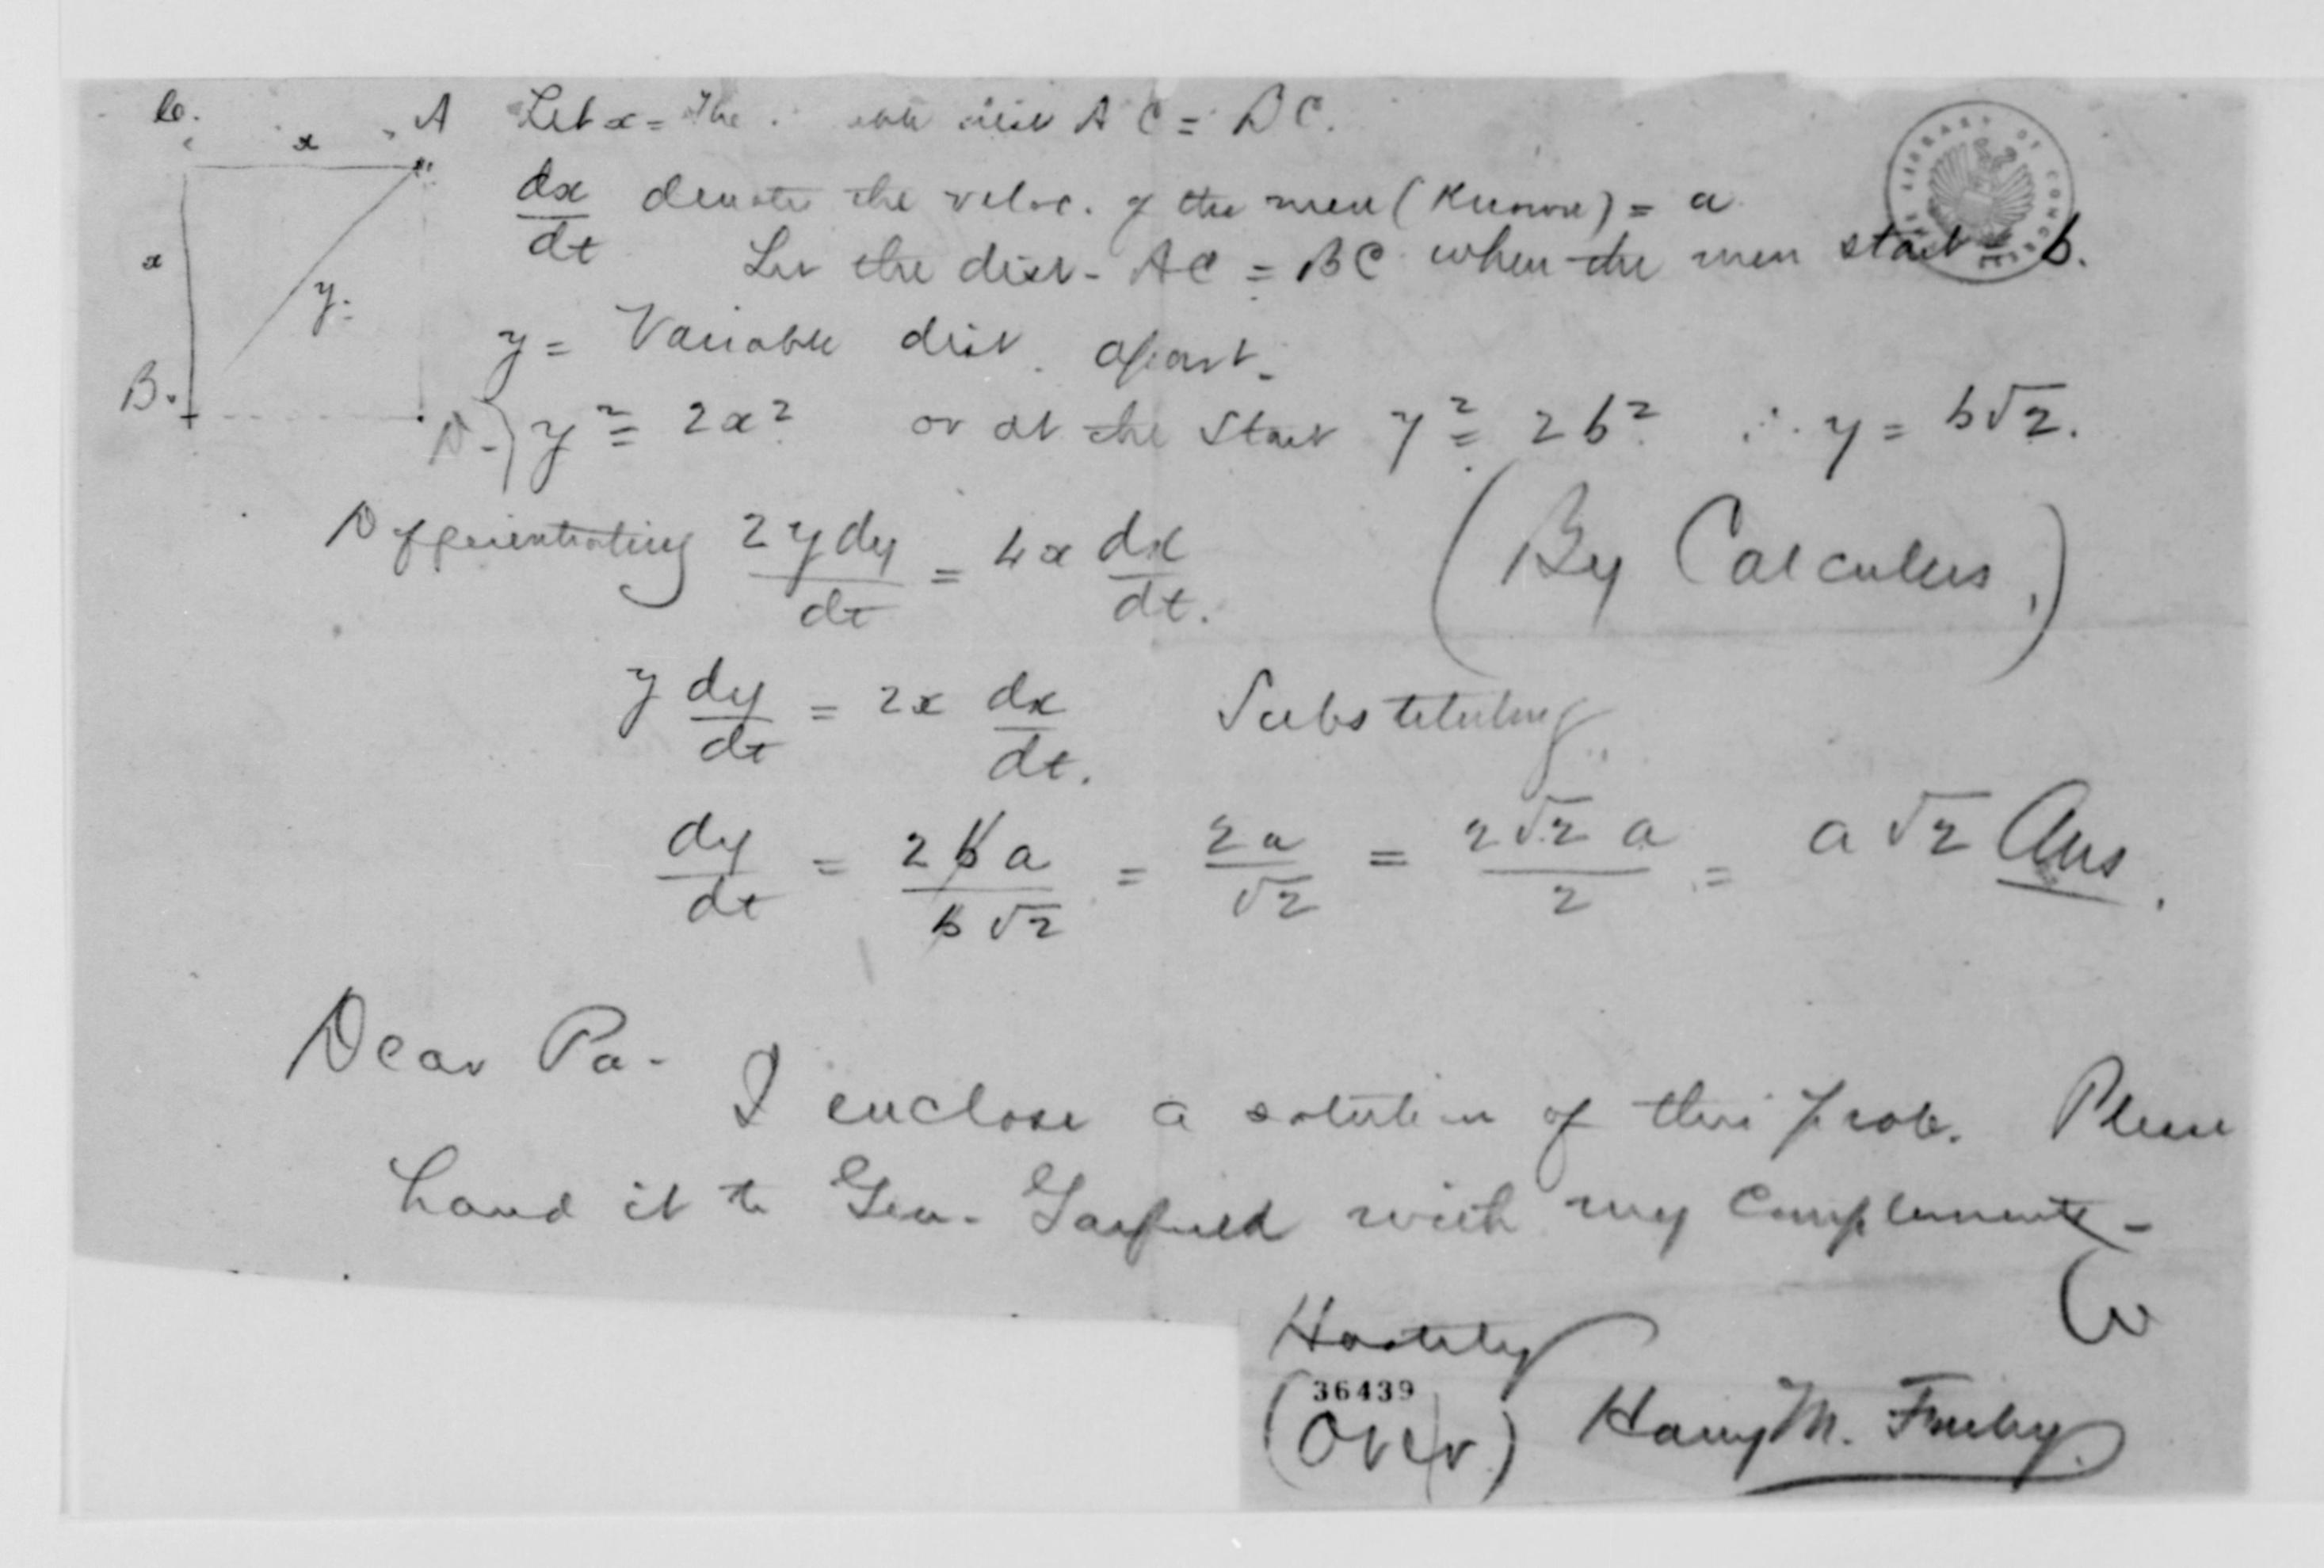 C. A Let x = The dist AC = BC.
x
dx/dt denotes the veloc. of the men (Known) = a
x Let the dist - AC = BC when the men start = b.
y.
y = Variable dist. apart.
B. D.) y² = 2x² or at the start y² = 2b² ∴ y = b√2.
Differentiating 2ydy/dt = 4x dx/dt. (By Calculus.)
y dy/dt = 2x dx/dt. Substituting
dy/dt = 2ba/b√2 = 2a/√2 = 2√2 a/2 = a√2 Ans.
Dear Pa-
I enclose a solution of this prob. Please
hand it to Gen. Garfield with my Compliments -
Hastily
36439
(Over) Harry M.
LIBRARY OF CONGRESS